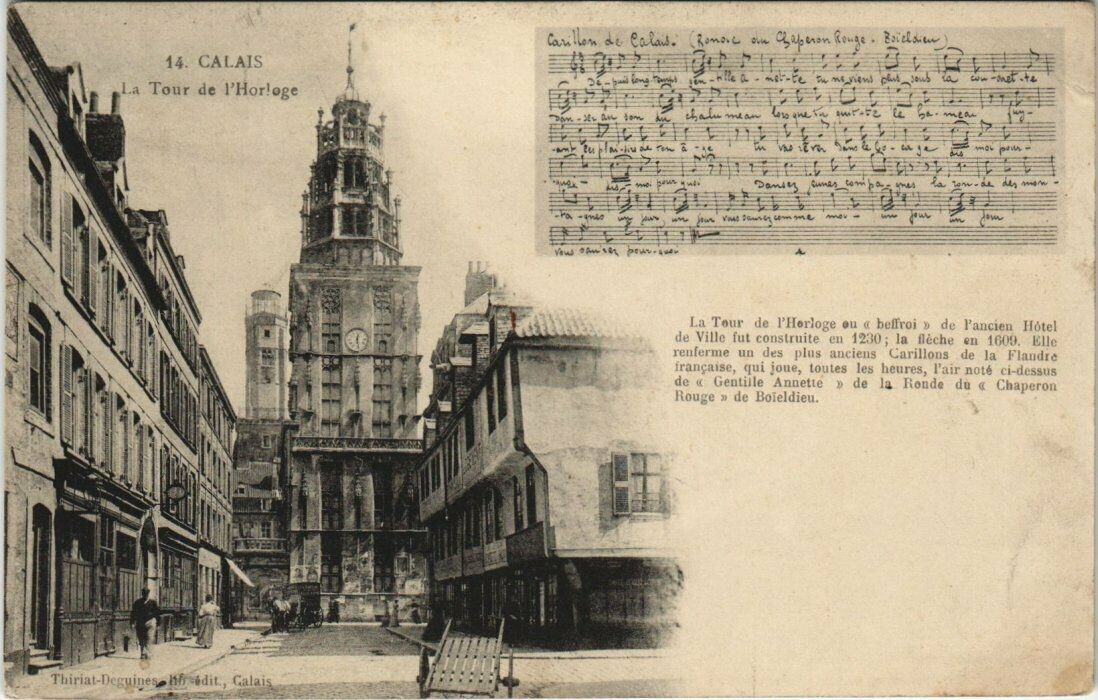 14. CALAIS
La Tour de l'Horloge
Carillon de Calais. (Ronde du Chaperon Rouge. Boïeldieu)
De-puis long-temps gen-tille a-net-te tu ne viens plus sous la cou-dret-te
Dan-ser au son du chalumeau lorsque tu quit-te le ha-meau fuy-
ant les plai-sirs de ton â-ge tu vas rêver dans le bo-ca-ge dis moi pour-
quoi dis-moi pour quoi Dansez jeunes compa-gnes la ron-de des mon-
ta-gnes un jour, un jour vous saurez comme moi un jour un jour
vous saurez pour-quoi
La Tour de l'Horloge ou « beffroi » de l'ancien Hôtel
de Ville fut construite en 1230; la flèche en 1609. Elle
renferme un des plus anciens Carillons de la Flandre
française, qui joue, toutes les heures, l'air noté ci-dessus
de « Gentille Annette » de la Ronde du « Chaperon
Rouge » de Boïeldieu.
Thiriat-Deguines, lib. édit., Calais